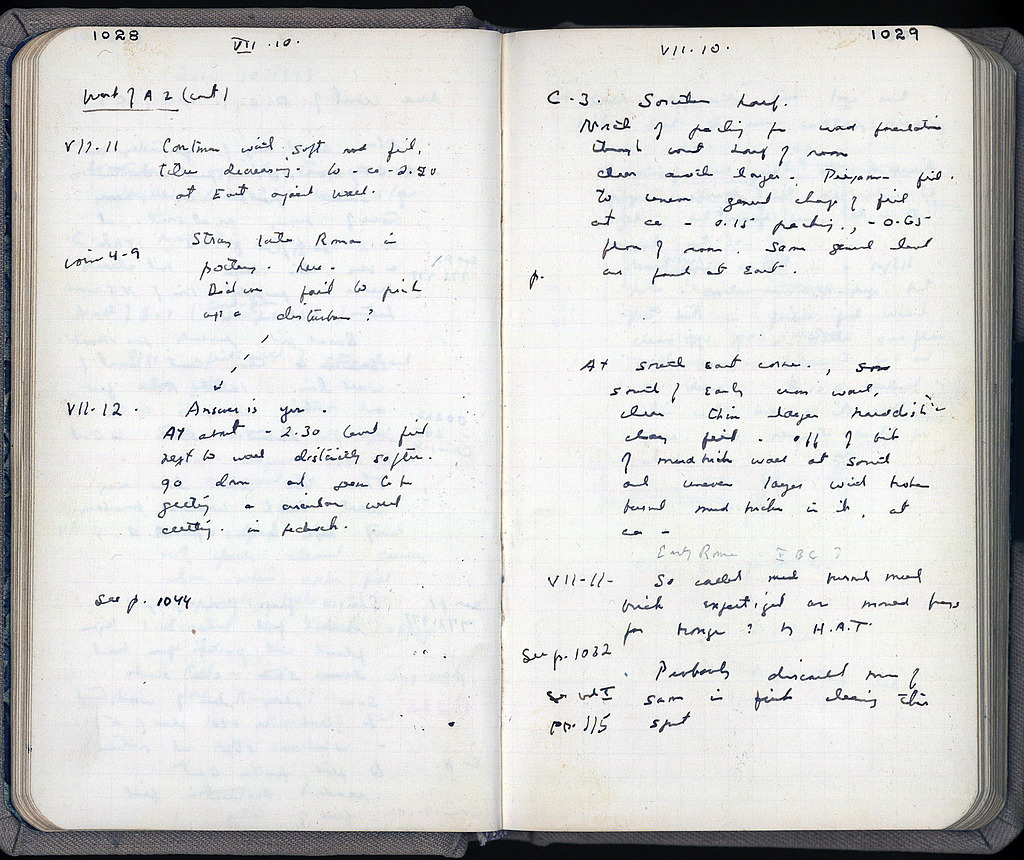 1028
VII.10.
West of A 2 (cont)
VII.11 Continue with soft red fill,
tiles decreasing. to - ca 2.80
at East against wall.
Stray late Roman in
coin 4-9
pottery. here.
Did we fail to pick
up a disturbance?
VII.12. Answer is yes
At about - 2.30 level fill
next to wall distinctly softer.
go down and seem to be
getting a circular well
cutting. in bedrock.
See p. 1044
1029
VII.10.
C-3. Southern half.
North of packing for wall foundation
through south half of room
clean earth layer. Pergamene fill.
to uneven general change of fill
at ca - 0.15 packing., - 0.65
floor of room. Same general level
as found at East.
p.
At south east corner., some
south of Early cross wall,
clear thin layer reddish
clay fill - off of bit
of mudbrick wall at south
and uneven layer with broken
burned mud bricks in it, at
ca -
Early Roman I BC ?
VII-11- So called mud burned mud
brick expertized as mould frags
for bronze? by H.A.T.
See p. 1032
Probably discarded more of
see vol I same in first cleaning this
pp. 115 spot